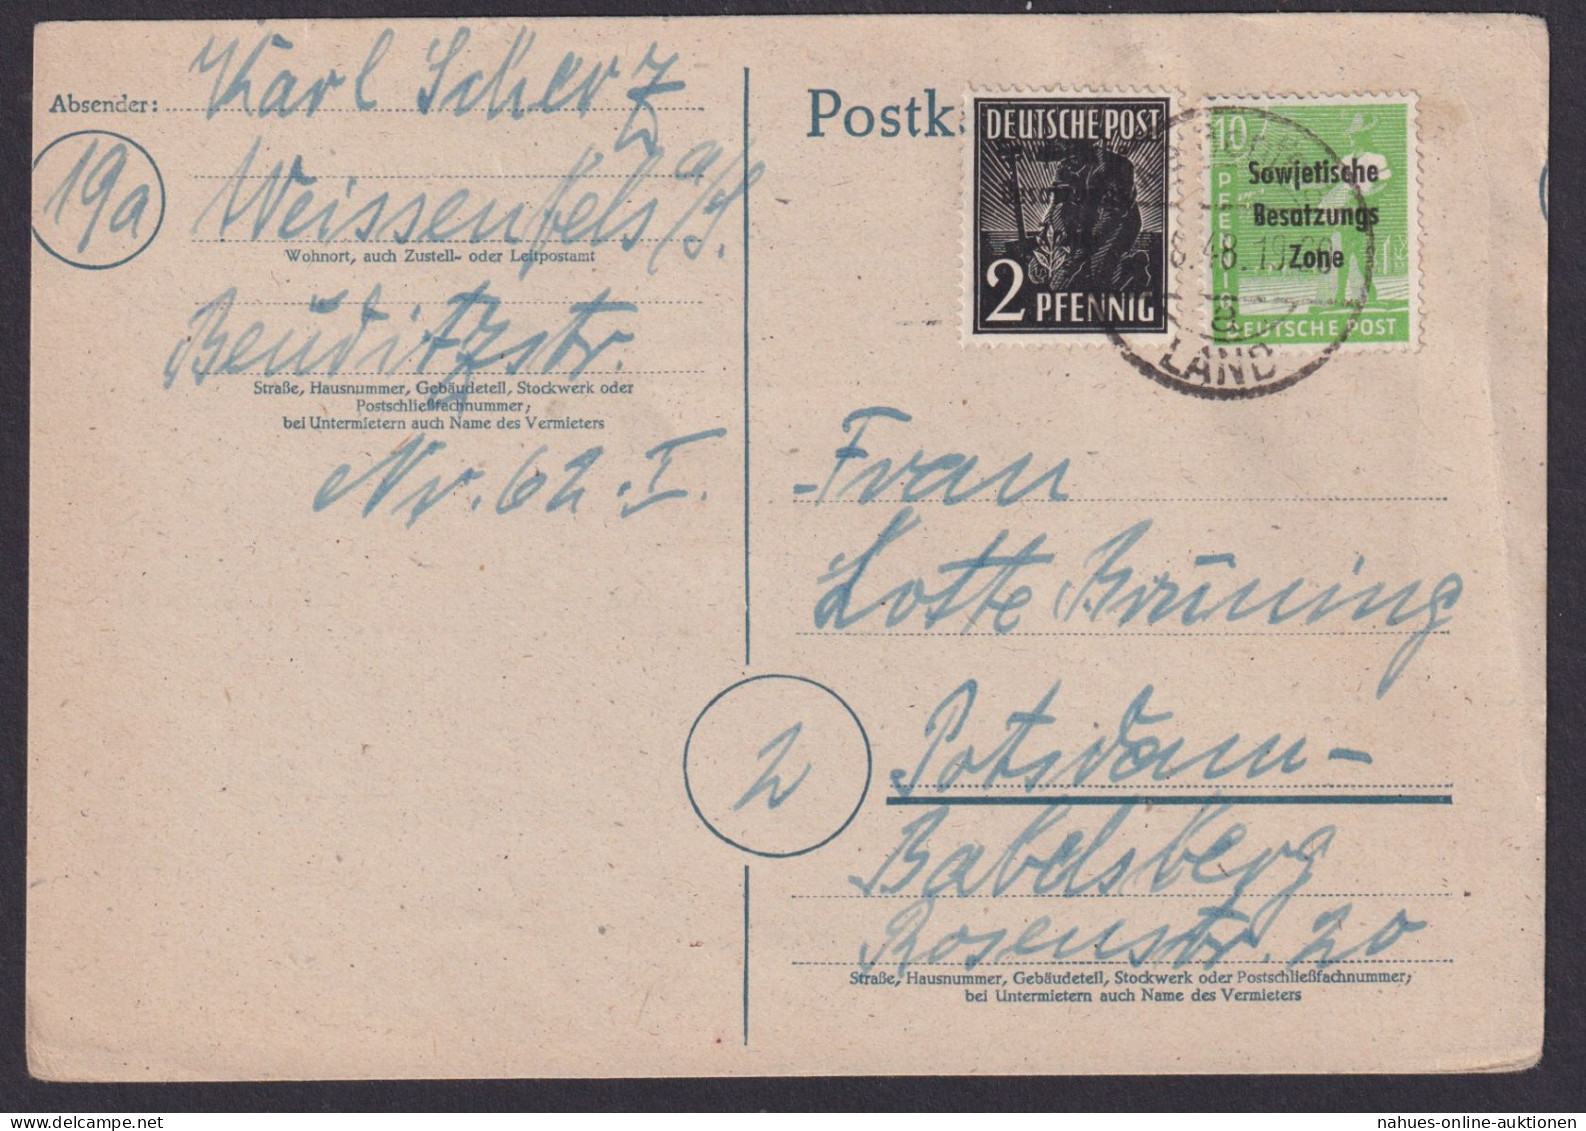 Absender: Karl Scherz
19a
Weissenfels a/S.
Wohnort, auch Zustell- oder Leitpostamt
Beuditzstr.
Straße, Hausnummer, Gebäudeteil, Stockwerk oder
Postschließfachnummer;
bei Untermietern auch Name des Vermieters
Nr. 62.I.
Postk
DEUTSCHE POST
2 PFENNIG
10
PFENNIG
Sowjetische
Besatzungs
Zone
DEUTSCHE POST
8.48.19
LAND
Frau
Lotte Brüning
2
Potsdam-
Babelsberg
Rosenstr. 20
Straße, Hausnummer, Gebäudeteil, Stockwerk oder Postschließfachnummer;
bei Untermietern auch Name des Vermieters
nahues-online-auktionen